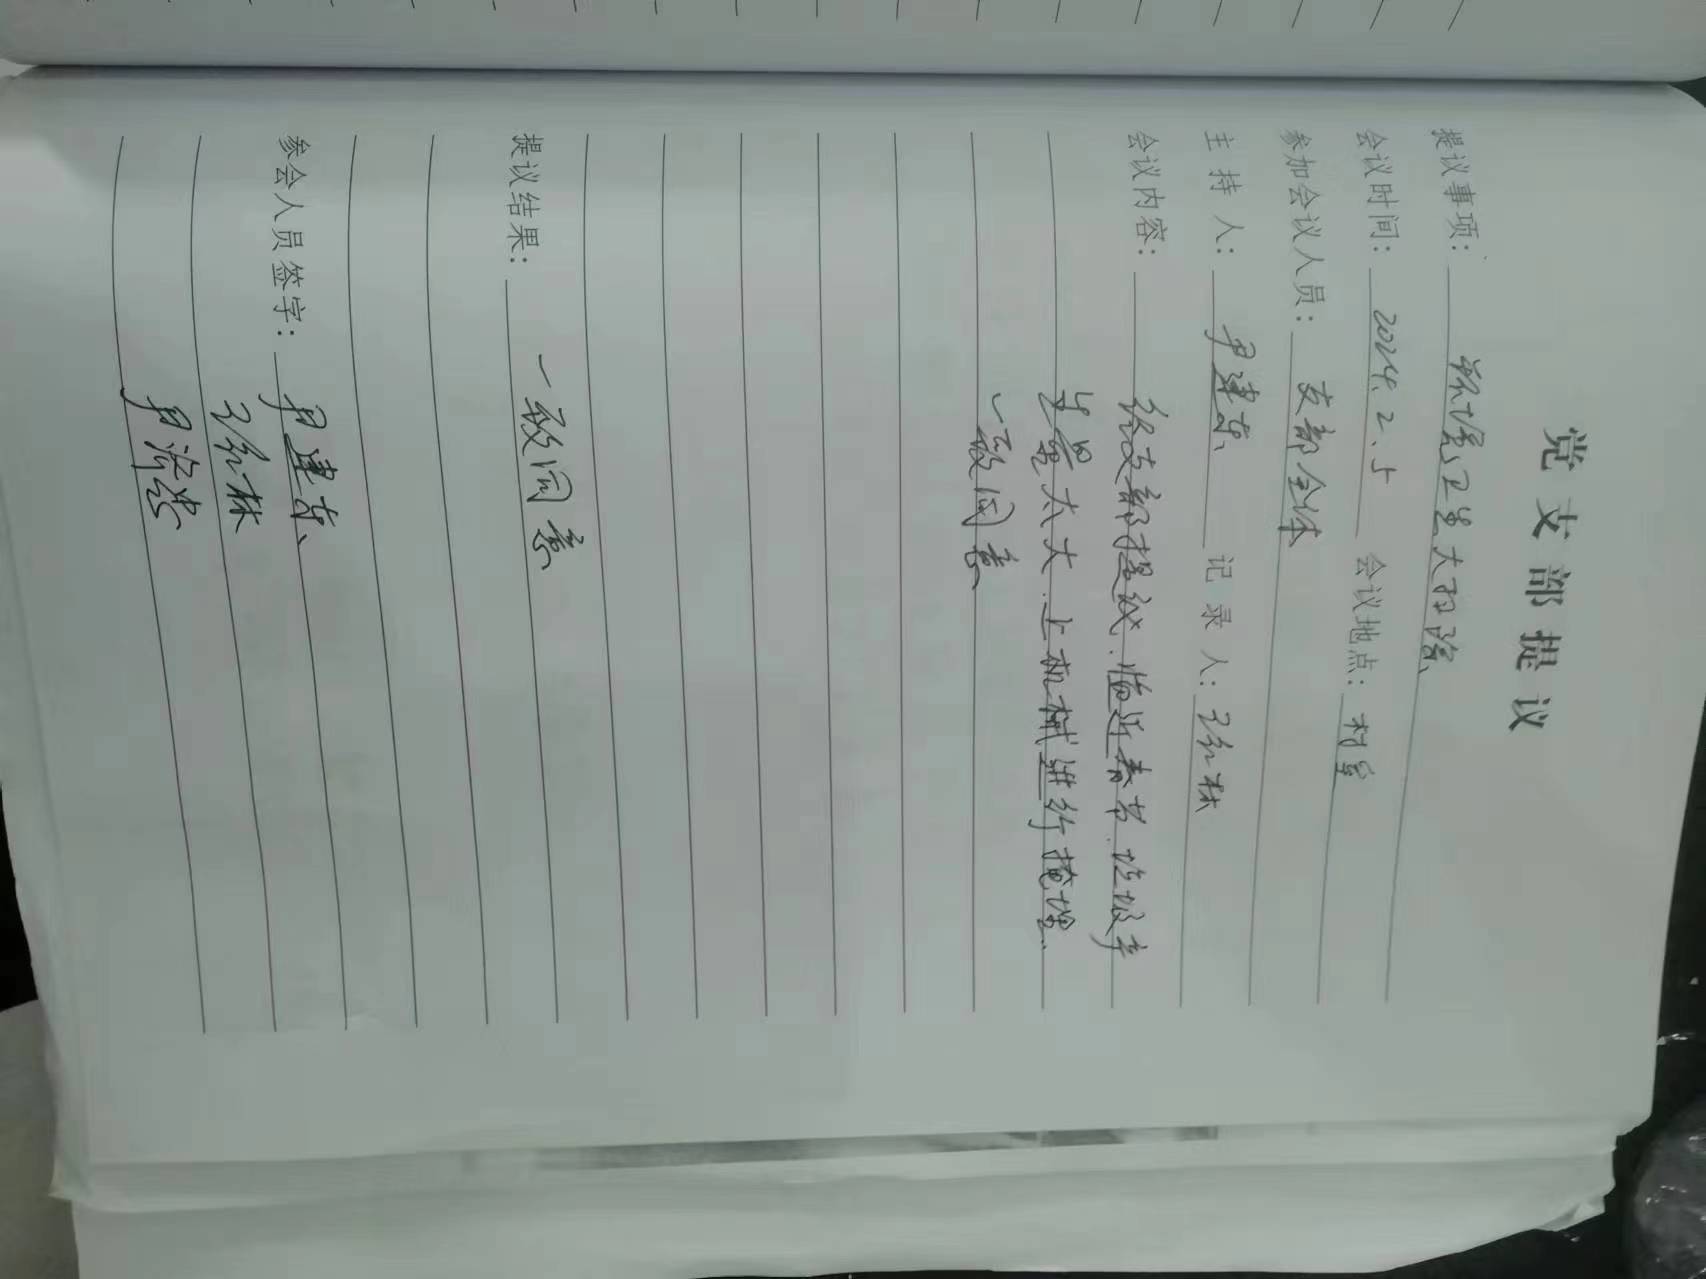 党支部提议
提议事项： 环境卫生大扫除
会议时间： 2024.2.5 会议地点： 村室
参加会议人员： 支部全体
主持人： 尹建东 记录人： 张林
会议内容： 经支部提议，临近春节，垃圾产
生量太大，上机械进行掩埋。
一致同意
提议结果： 一致同意
参会人员签字： 尹建东
张林
尹